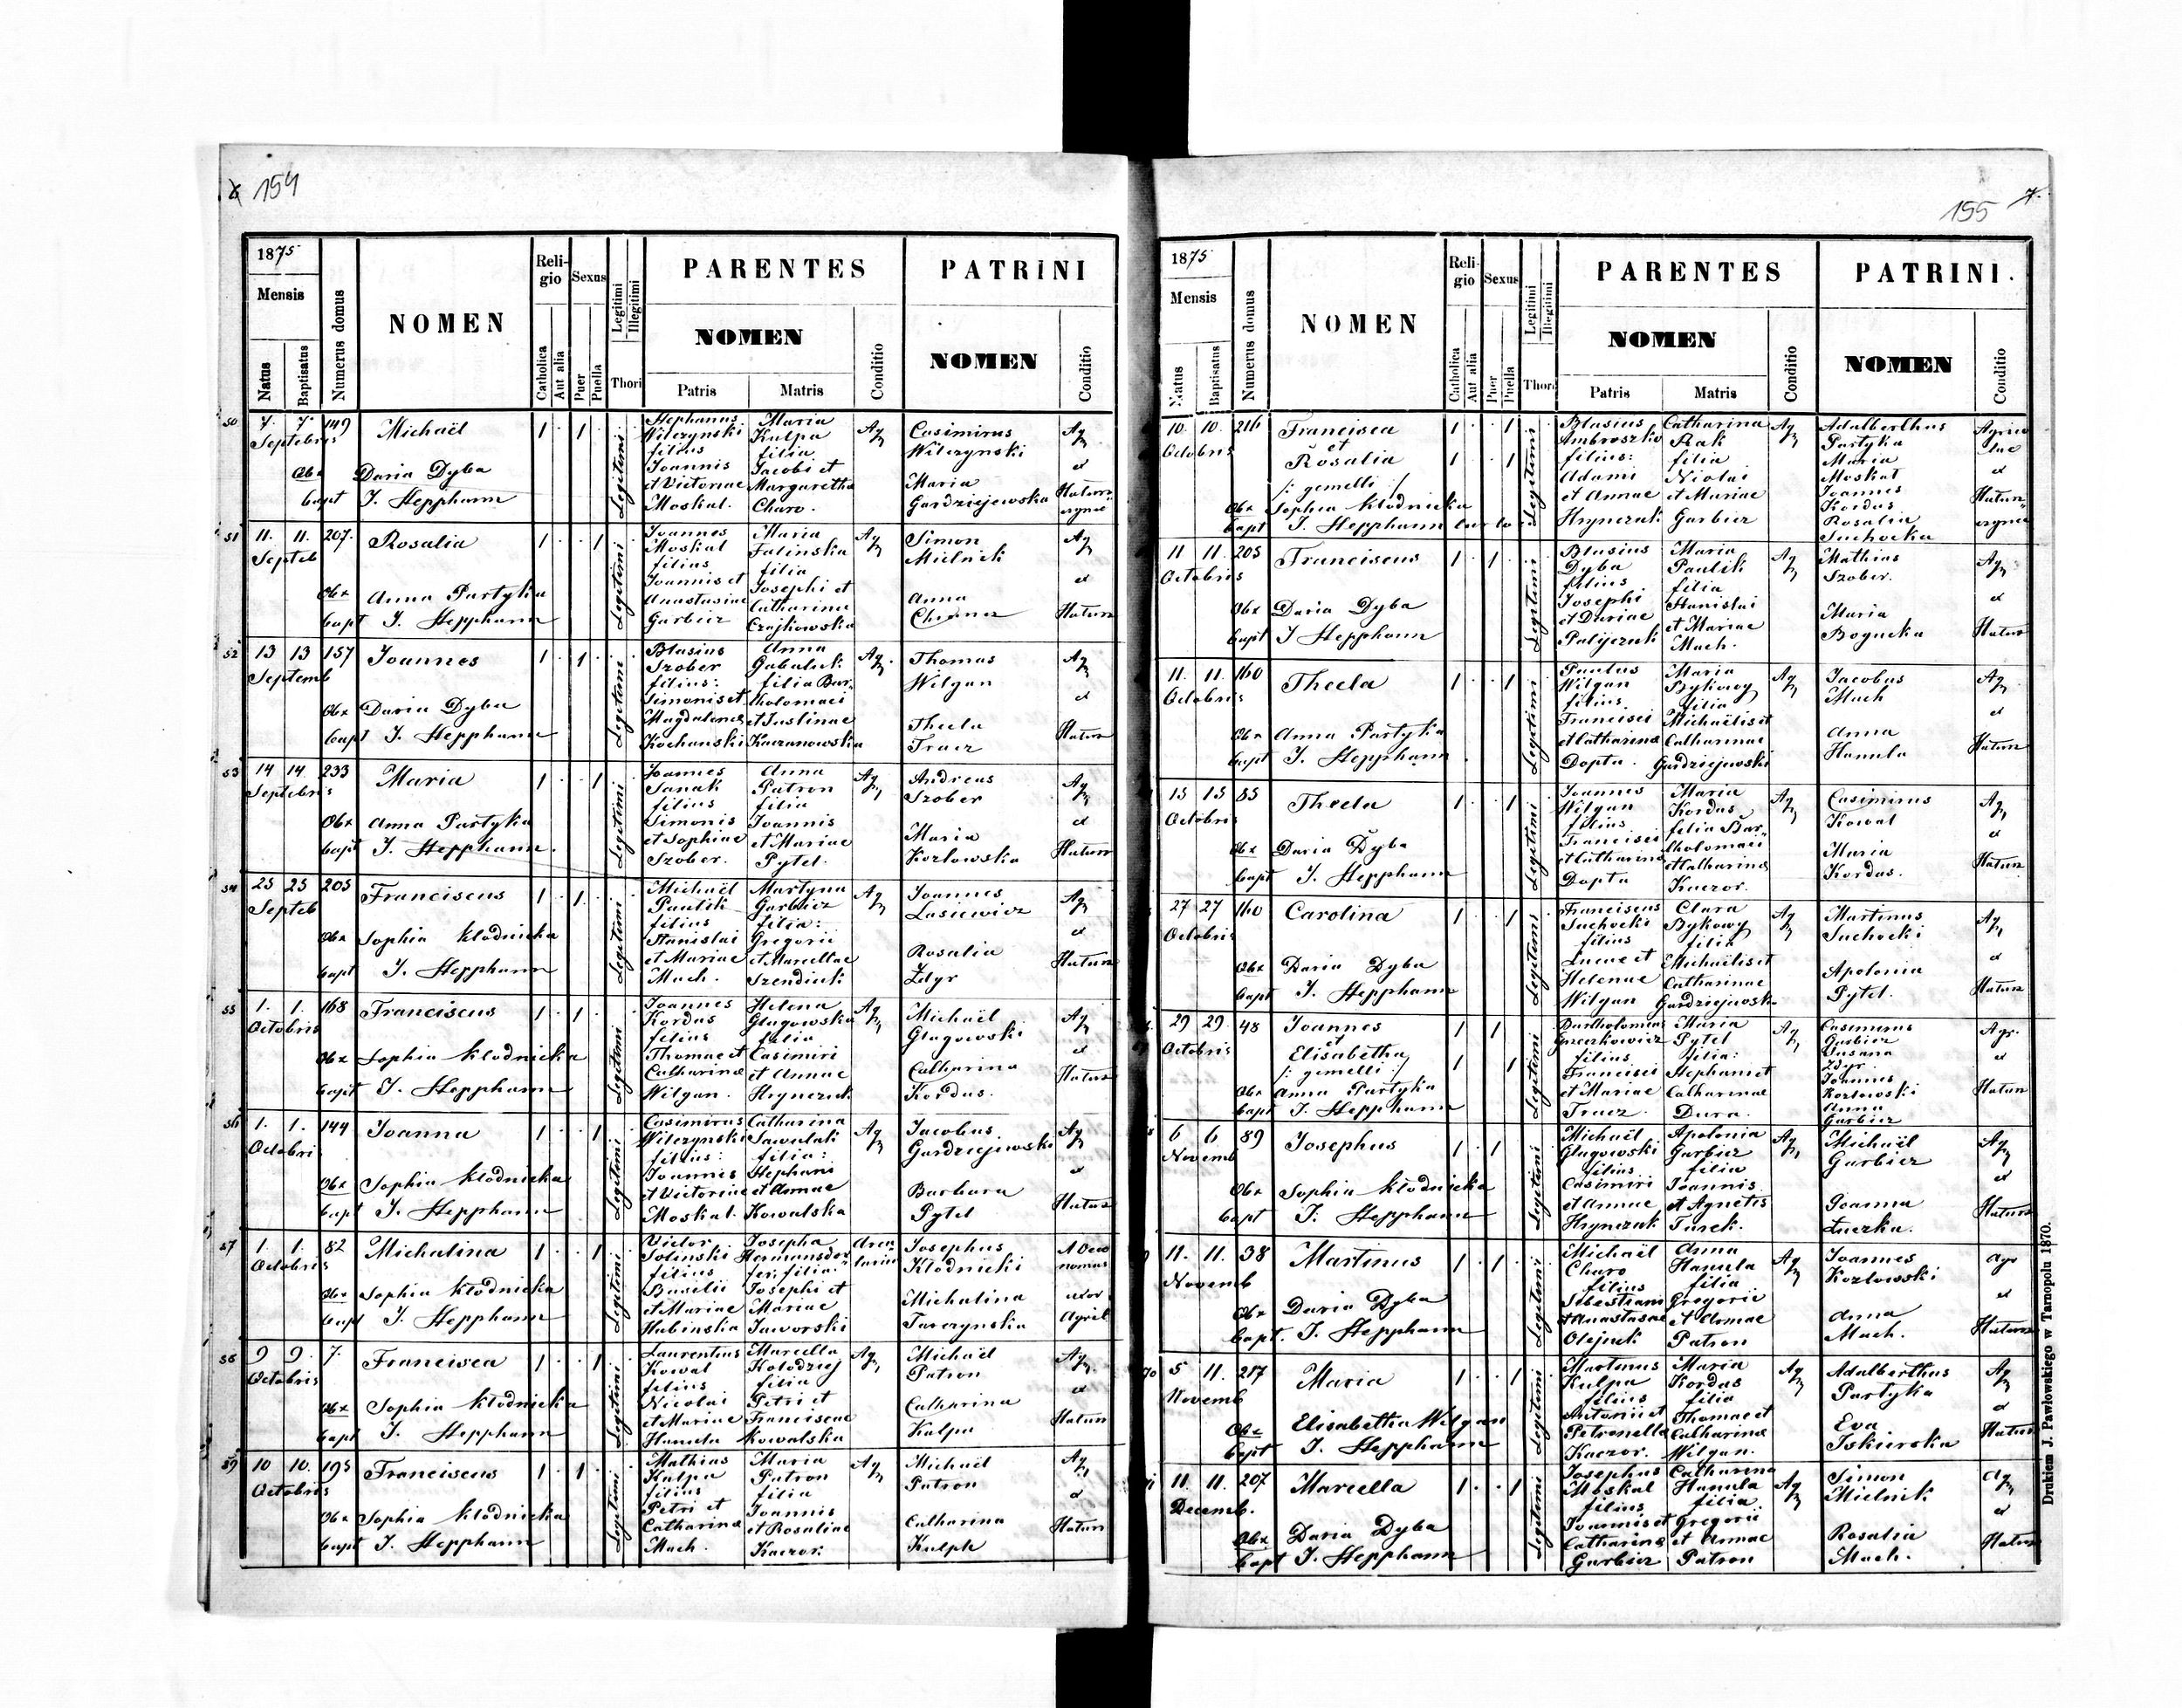 154
1875
Mensis
Natus
Baptisatus
Numerus domus
NOMEN
Reli-
gio
Catholica
Aut alia
Sexus
Puer
Puella
Legitimi
Illegitimi
Thori
PARENTES
NOMEN
Patris
Matris
Conditio
PATRINI
NOMEN
Conditio
50
7. 7. 149 Michaël 1 . 1 .
Septebris
Obx Daria Dyba
bapt J. Stepphann
Legitimi
Stephanus
Wilczynski
filius
Joannis
et Victoriae
Moskal.
Maria
Kulpa
filia
Jacobi et
Margaretha
Charo.
Ag
Casimirus
Wilczynski
Maria
Gardziejewska
Ag
et
51
11. 11. 207. Rosalia 1 . . 1
Septeb
Obx Anna Partyka
bapt J. Stepphann
Legitimi
Joannes
Moskal
filius
Joannis et
Anastasiae
Garbicz
Maria
Falinska
filia
Josephi et
Catharina
Czajkowska
Ag
Simon
Mielnik
Anna
Ag
et
52
13 13 157 Joannes 1 . 1 .
Septemb
Obx Daria Dyba
bapt J. Stepphann
Legitimi
Blasius
Szober
filius:
Simonis et
Magdalenae
Kochanski
Anna
Gabaluk
filia Bar-
tholomaei
et Justinae
Kaczanowska
Ag.
Thomas
Wilgan
Thecla
Tracz
Ag
et
53
14 14 233 Maria 1 . . 1
Septebris
Obx Anna Partyka
bapt J. Stepphann.
Legitimi
Joannes
Sanak
filius
Simonis
et Sophiae
Szober.
Anna
Patron
filia
Joannis
et Mariae
Pytel.
Ag
Andreas
Szober
Maria
Kozlowska
Ag
et
54
25 25 205 Franciscus 1 . 1 .
Septeb
Obx Sophia Kłodnicka
bapt J. Stepphann
Legitimi
Michaël
Paulik
filius
Stanislai
et Mariae
Mach.
Martyna
Garbicz
filia:
Gregorii
et Marcellae
Szendiuk
Ag
Joannes
Lasiewicz
Rosalia
Zdyr
Ag
et
55
1. 1. 168 Franciscus 1 . 1 .
Octobris
Obx Sophia Kłodnicka
bapt J. Stepphann
Legitimi
Joannes
Kordas
filius
Thomae et
Catharinae
Wilgan.
Helena
Glugowska
filia
Casimiri
et Annae
Hrynczuk
Ag
Michaël
Glugowski
Catharina
Kordas.
Ag
et
56
1. 1. 144 Joanna 1 . . 1
Octobri
Obx Sophia Kłodnicka
bapt J. Stepphann
Legitimi
Casimirus
Wilczynski
filius:
Joannis
et Victoriae
Moskal.
Catharina
Sawulak
filia:
Stephani
et Annae
Kowalska
Ag
Jacobus
Gardziejewski
Barbara
Pytel
Ag
et
57
1. 1. 82 Michalina 1 . . 1
Octobris
Obx Sophia Kłodnicka
bapt J. Stepphann
Legitimi
Victor
Solinski
filius
Basilii
et Mariae
Hubinska
Josepha
Hermansdor-
fer. filia
Josephi et
Mariae
Jaworski
Josephus
Kłodnicki
Michalina
Tarczynska
58
9 9 7. Francisca 1 . . 1
Octobris
Obx Sophia Kłodnicka
bapt J. Stepphann
Legitimi
Laurentius
Kowal
filius
Nicolai
et Mariae
Hanula
Marcella
Kolodziej
filia
Petri et
Franciscae
Kowalska
Ag
Michaël
Patron
Catharina
Kulpa
Ag.
et
59
10 10. 195 Franciscus 1 . 1 .
Octobris
Obx Sophia Kłodnicka
bapt J. Stepphann
Legitimi
Mathias
Kulpa
filius
Petri et
Catharinae
Mach.
Maria
Patron
filia
Joannis
et Rosaliae
Kaczor.
Ag
Michaël
Patron
Catharina
Kulpk
Ag
et
155
7.
1875
Mensis
Natus
Baptisatus
Numerus domus
NOMEN
Reli-
gio
Catholica
Aut alia
Sexus
Puer
Puella
Legitimi
Illegitimi
Thori
PARENTES
NOMEN
Patris
Matris
Conditio
PATRINI.
NOMEN
Conditio
10. 10. 216 Francisca 1 . . 1
Octobris et
Rosalia 1 . 1
/: gemelli :/
Obx Sophia Kłodnicka
bapt J. Stepphann
Legitimi
Blasius
Ambroszko
filius:
Adami
et Annae
Hrynczuk
Catharina
Rak
filia
Nicolai
et Mariae
Garbicz
Ag
Adalberthus
Partyka
Maria
Moskal
Joannes
Kordas
Rosalia
Suchocka
et
11 11. 205 Franciscus 1 . 1 .
Octobris
Obx Daria Dyba
bapt J Stepphann
Legitimi
Blasius
Dyba
filius
Josephi
et Dariae
Palijczuk
Maria
Paulik
filia
Stanislai
et Mariae
Mach.
Ag
Mathias
Szober.
Maria
Bogucka
Ag
et
11. 11. 160 Thecla 1 . . 1
Octobris
Obx Anna Partyka
bapt J. Stepphann
Legitimi
Paulus
Wilgan
filius
Francisci
et Catharinae
Dopta.
Maria
Bykowy
filia
Michaëlis et
Catharinae
Gardziejewski
Ag
Jacobus
Mach
Anna
Hanula
Ag
et
15 15 85 Thecla 1 . . 1
Octobris
Obx Daria Dyba
bapt J. Stepphann
Legitimi
Joannes
Wilgan
filius
Francisci
et Catharinae
Dopta
Maria
Kordas
filia Bar-
tholomaei
et Catharinae
Kaczor.
Ag
Casimirus
Kowal
Maria
Kordas.
Ag
et
27 27 160 Carolina 1 . . 1
Octobris
Obx Daria Dyba
bapt J. Stepphann
Legitimi
Franciscus
Suchocki
filius
Lucae et
Helenae
Wilgan
Clara
Bykowy
filia
Michaëlis et
Catharinae
Gardziejewsk
Ag
Martinus
Suchocki
Apolonia
Pytel.
Ag
et
29 29. 48 Joannes 1 1
Octobris et
Elisabetha 1 1
/: gemelli :/
Obx Anna Partyka
bapt J. Stepphann
Legitimi
Bartholomaeus
filius
Francisci
et Mariae
Tracz
Maria
Pytel
filia:
Stephani et
Catharinae
Dura.
Ag
Casimirus
Garbicz
Susana
Zdyr
Joannes
Kozlowski
Anna
Garbicz
Agr.
et
6 6. 89 Josephus 1 . 1 .
Novemb
Obx Sophia Kłodnicka
bapt J. Stepphann
Legitimi
Michaël
Glugowski
filius
Casimiri
et Annae
Hrynczuk
Apolonia
Garbicz
filia
Joannis
et Agnetis
Turek.
Ag
Michaël
Garbicz
Joanna
Łuczka.
Ag
et
11. 11. 38 Martinus 1 . 1 .
Novemb
Obx Daria Dyba
bapt. J. Stepphann
Legitimi
Michaël
Charo
filius
Sebestiani
et Anastasiae
Olejnik
Anna
Hanula
filia
Gregorii
et Annae
Patron
Ag
Joannes
Kozlowski
Anna
Mach.
Agr
et
70
5 11. 217 Maria 1 . . 1
Novemb
Obx Elisabetha Wilgan
bapt J. Stepphann
Legitimi
Martinus
Kulpa
filius
Antonii et
Petronella
Kaczor.
Maria
Kordas
filia
Thomae et
Catharinae
Wilgan.
Ag
Adalberthus
Partyka
Eva
Iskierska
Ag
et
11. 11. 207 Marcella 1 . . 1
Decemb.
Obx Daria Dyba
bapt J. Stepphann
Legitimi
Josephus
Moskal
filius
Joannis et
Catharinae
Garbicz
Catharina
Hanula
filia
Gregorii
et Annae
Patron
Ag
Simon
Mielnik
Rosalia
Mach.
Ag
et
Drukiem J. Pawłowskiego w Tarnopolu 1870.